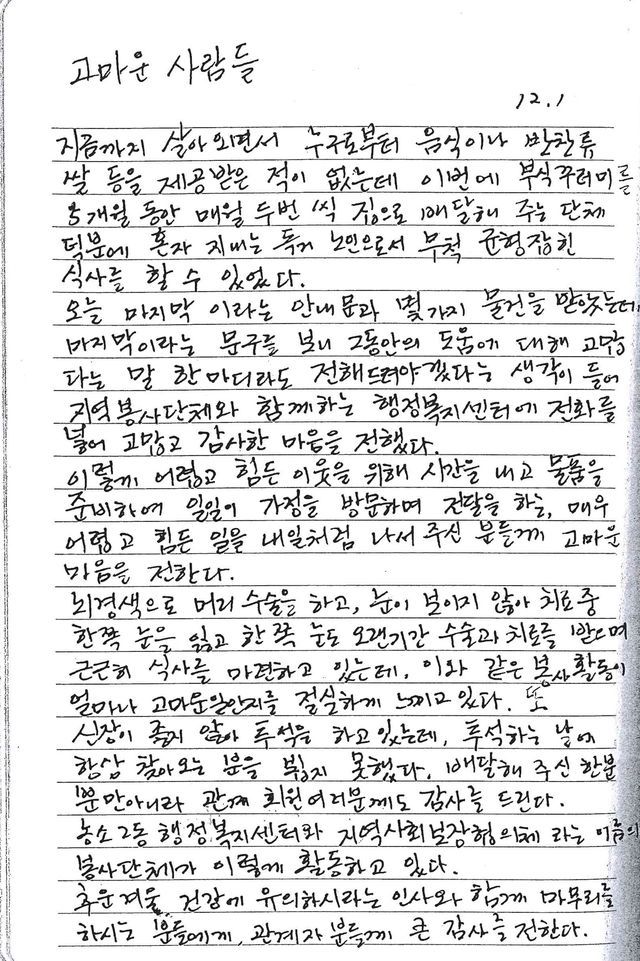 고마운 사람들
12.1
지금까지 살아오면서 누구로부터 음식이나 반찬류
쌀 등을 제공받은 적이 없는데 이번에 부식꾸러미를
5개월 동안 매월 두번 씩 집으로 배달해 주는 단체
덕분에 혼자 지내는 독거 노인으로서 무척 균형잡힌
식사를 할 수 있었다.
오늘 마지막 이라는 안내문과 몇가지 물건을 받았는데,
마지막이라는 문구를 보니 그동안의 도움에 대해 고맙
다는 말 한마디라도 전해드려야겠다는 생각이 들어
지역봉사단체와 함께하는 행정복지센터에 전화를
넣어 고맙고 감사한 마음을 전했다.
이렇게 어렵고 힘든 이웃을 위해 시간을 내고 물품을
준비하여 일일이 가정을 방문하며 전달을 하는, 매우
어렵고 힘든 일을 내일처럼 나서 주신 분들께 고마운
마음을 전한다.
뇌경색으로 머리 수술을 하고, 눈이 보이지 않아 치료중
한쪽 눈을 잃고 한쪽 눈도 오랜기간 수술과 치료를 받으며
근근히 식사를 마련하고 있는데, 이와 같은 봉사활동이
얼마나 고마운일인지를 절실하게 느끼고 있다. 또
신장이 좋지 않아 투석을 하고 있는데, 투석하는 날에
항상 찾아오는 분을 뵙지 못했다. 배달해 주신 한분
뿐만아니라 관계 회원여러분께도 감사를 드린다.
농소2동 행정복지센터와 지역사회보장협의체 라는 이름의
봉사단체가 이렇게 활동하고 있다.
추운겨울 건강에 유의하시라는 인사와 함께 마무리를
하시는 분들에게, 관계자 분들께 큰 감사를 전한다.